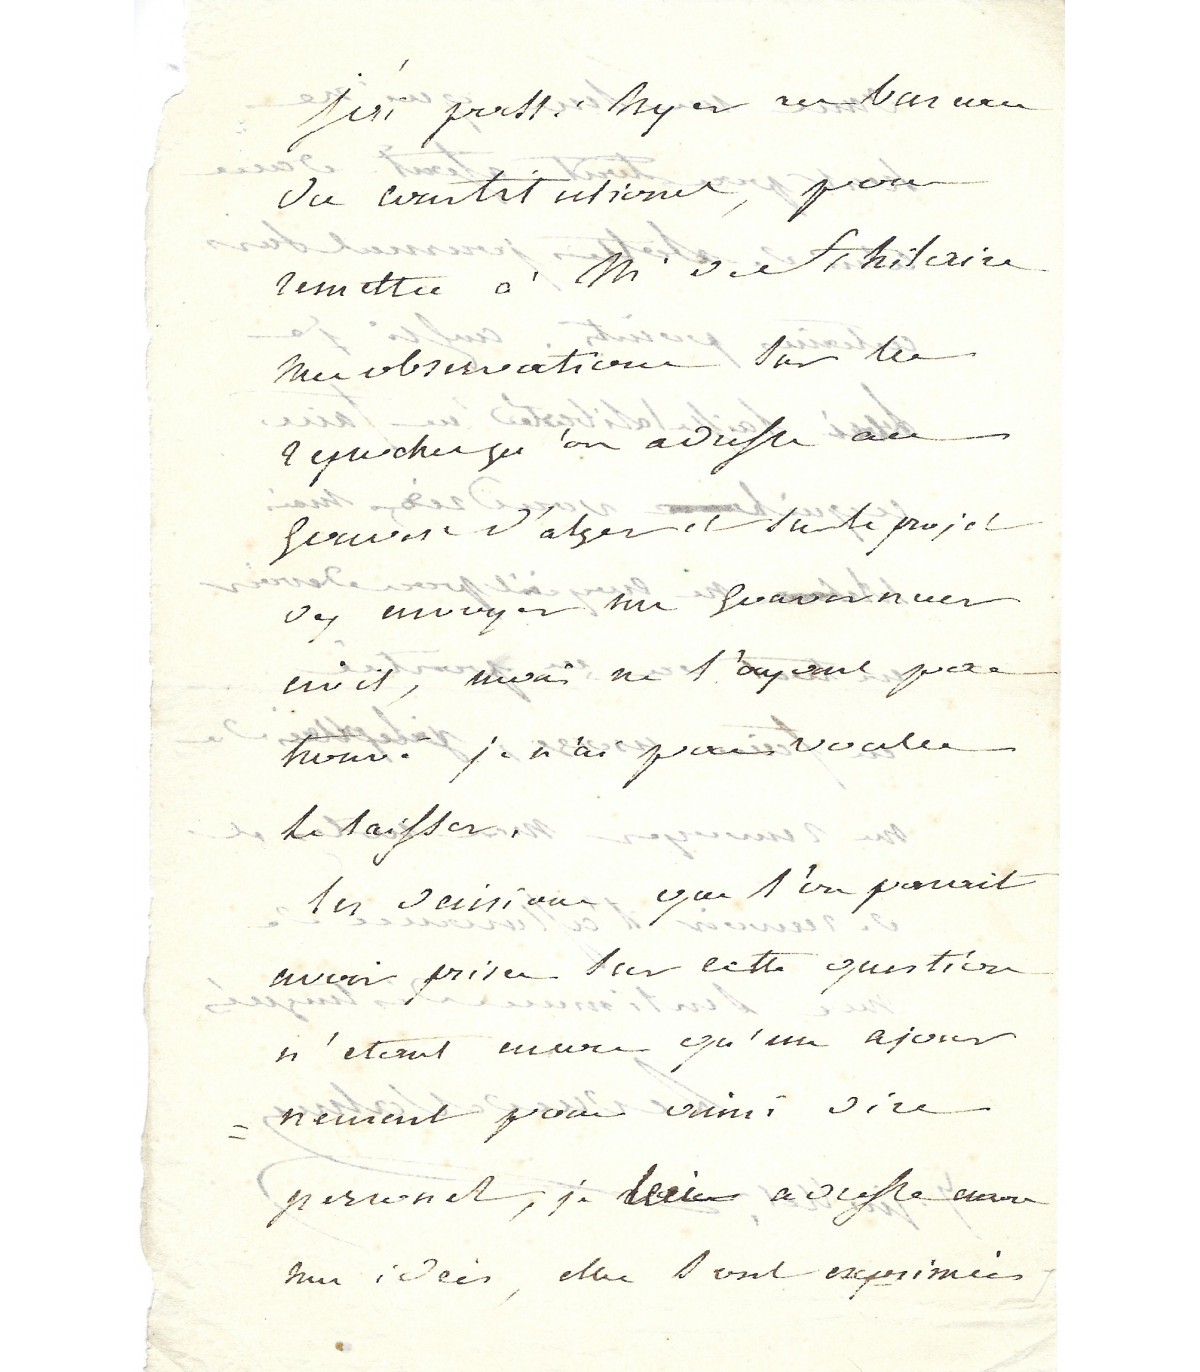 j'ai passé hyer au bureau
du constitutionel, pour
remettre à Mr de St hilaire
mes observations sur les
reproches qu'on adresse au
Gouvr d'alger et sur le projet
d'y envoyer un Gouverneur
civil, mais ne l'ayant pas
trouvé je n'ai pas voulu
les laisser.
les décisions que l'on parait
avoir prises sur cette question
n'étant encore qu'un ajour
=nement pour ainsi dire
personel, je lui adresse encore
mes idées, elles sont exprimées